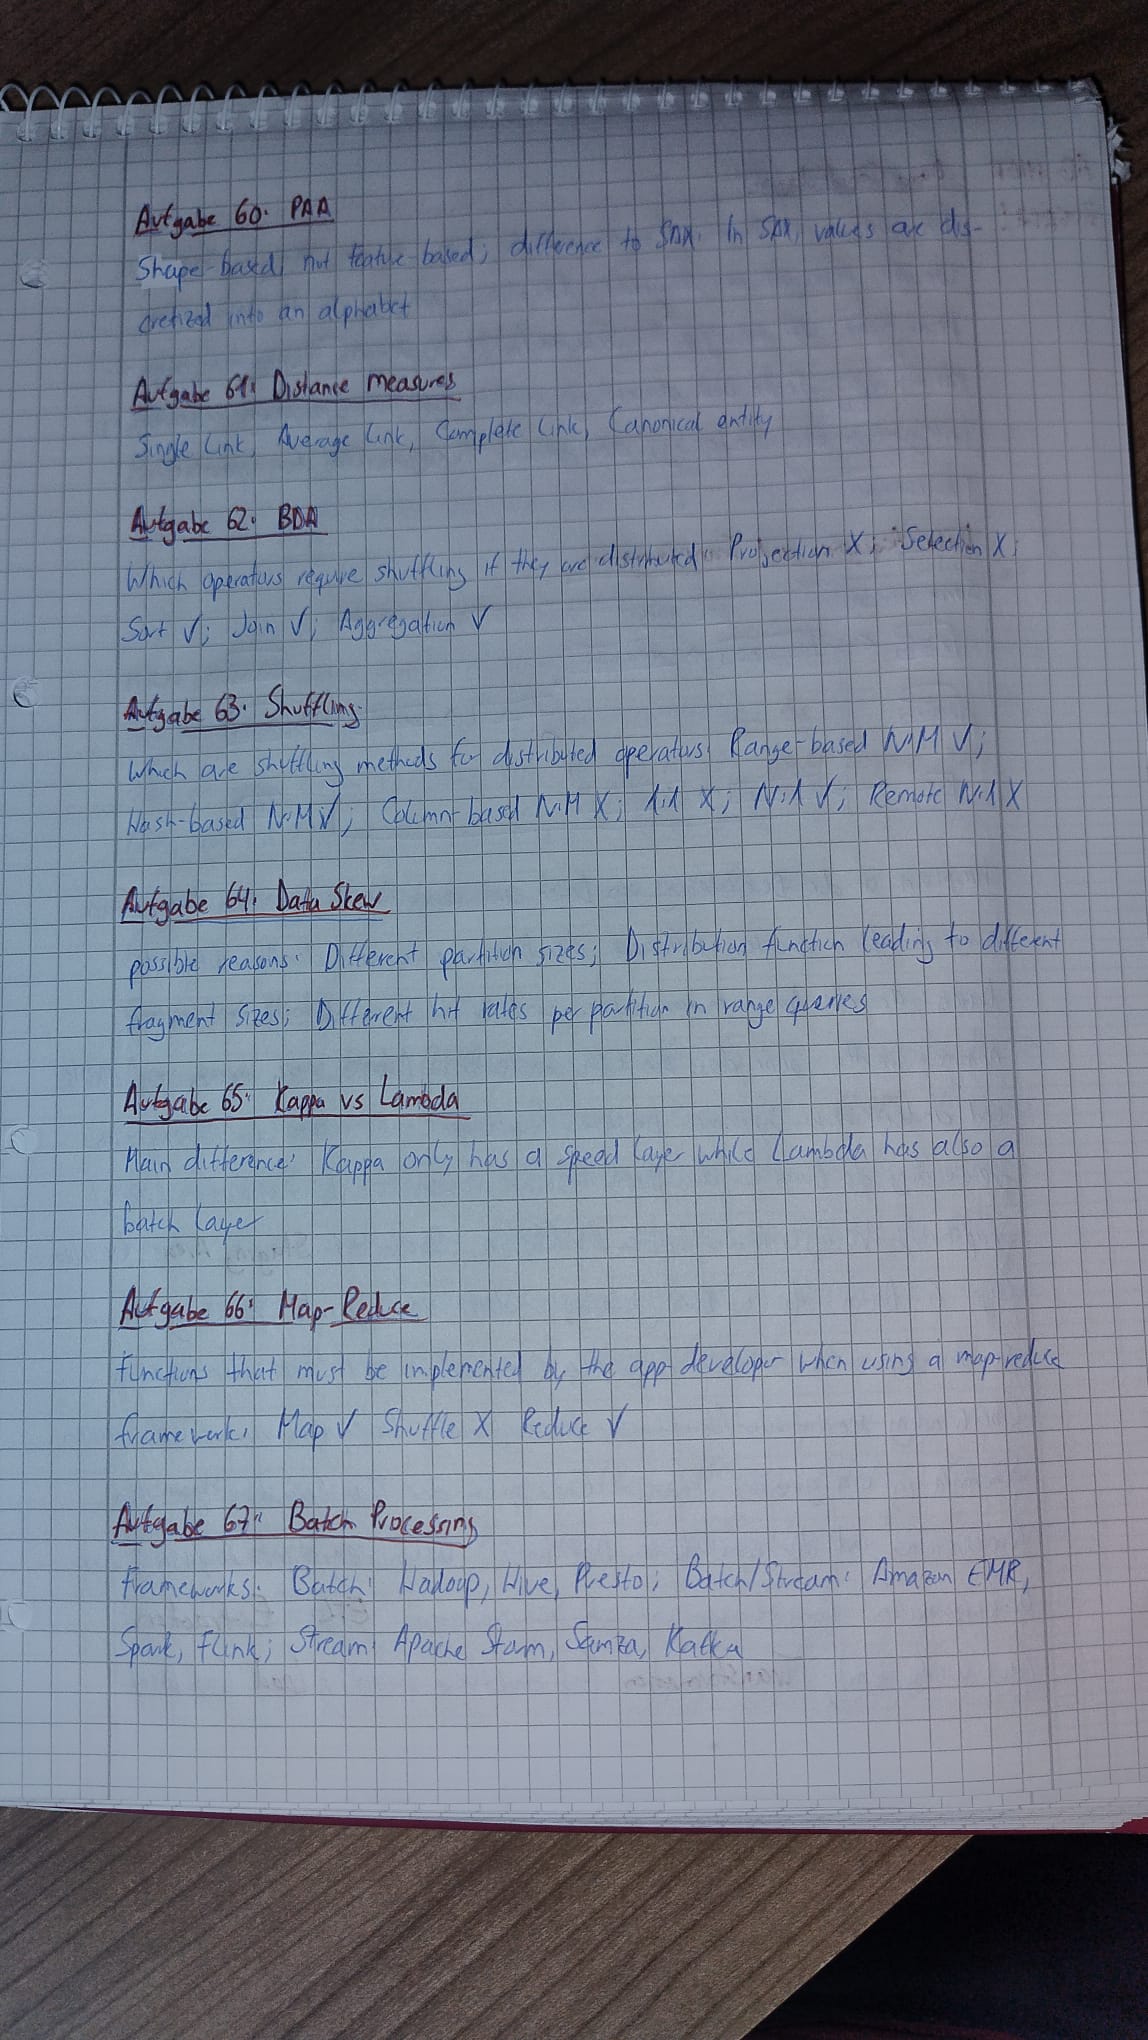 Aufgabe 60: PAA
Shape-based, not feature based; difference to SAX: In SAX, values are dis-
cretized into an alphabet
Aufgabe 61: Distance measures
Single Link, Average Link, Complete Link, Canonical entity
Aufgabe 62: BDA
Which operators require shuffling if they are distributed: Projection X; Selection X;
Sort V; Join V; Aggregation V
Aufgabe 63: Shuffling
Which are shuffling methods for distributed operators: Range-based N:M V;
Hash-based N:M V; Column-based N:M X; 1:1 X; N:1 V; Remote N:1 X
Aufgabe 64: Data Skew
possible reasons: Different partition sizes; Distribution function leading to different
fragment sizes; Different hit rates per partition in range queries
Aufgabe 65: Kappa vs Lambda
Main difference: Kappa only has a speed layer while Lambda has also a
batch layer
Aufgabe 66: Map-Reduce
functions that must be implemented by the app developer when using a map-reduce
framework: Map V Shuffle X Reduce V
Aufgabe 67: Batch Processing
Frameworks: Batch: Hadoop, Hive, Presto; Batch/Stream: Amazon EMR,
Spark, Flink; Stream: Apache Storm, Samza, Kafka